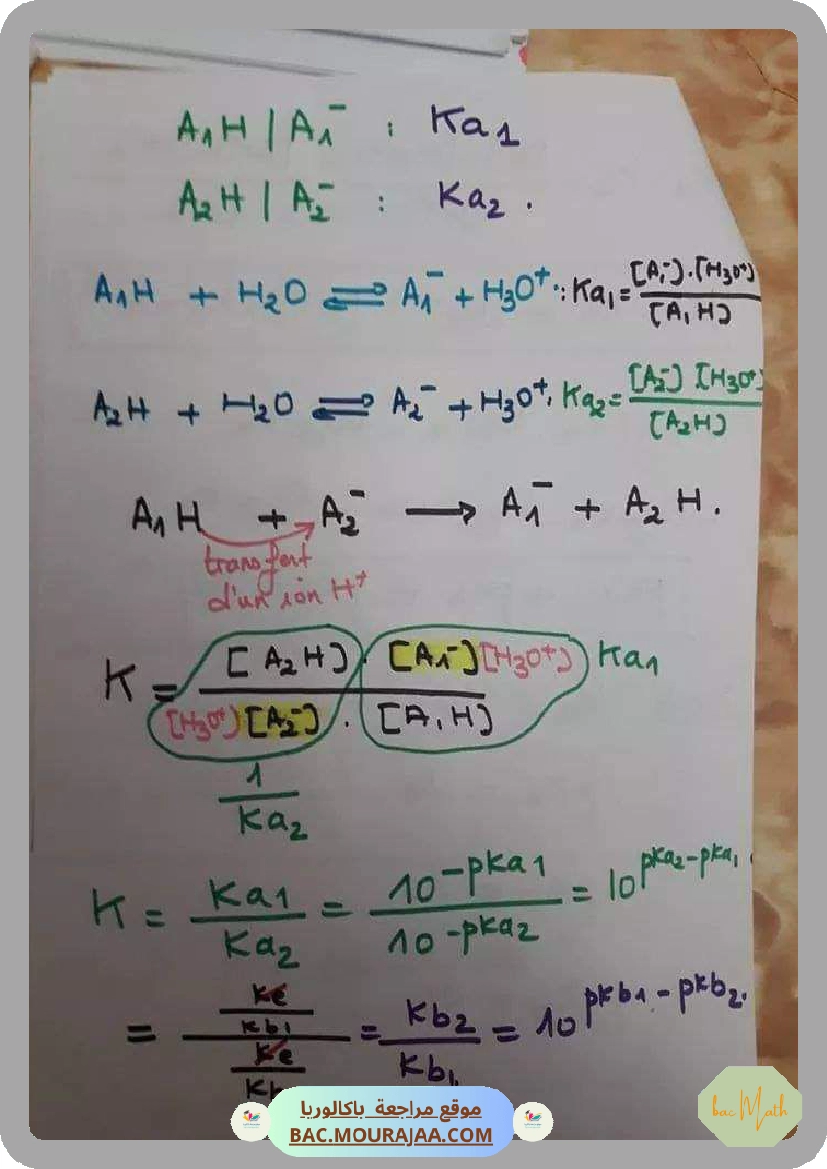 A₁H | A₁⁻ : Ka₁
A₂H | A₂⁻ : Ka₂.
A₁H + H₂O ⇌ A₁⁻ + H₃O⁺ : Ka₁ = [A₁⁻].[H₃O⁺] / [A₁H]
A₂H + H₂O ⇌ A₂⁻ + H₃O⁺, Ka₂ = [A₂⁻] [H₃O⁺] / [A₂H]
A₁H + A₂⁻ ⟶ A₁⁻ + A₂H.
transfert
d'un ion H⁺
K = [A₂H] . [A₁⁻][H₃O⁺] / [H₃O⁺][A₂⁻] . [A₁H] Ka₁
1 / Ka₂
K = Ka₁ / Ka₂ = 10^-pKa₁ / 10^-pKa₂ = 10^pKa₂-pKa₁
= Ke / Kb₁ / Ke / Kb = Kb₂ / Kb₁ = 10^pKb₁-pKb₂.
موقع مراجعة باكالوريا
BAC.MOURAJAA.COM
bac Math